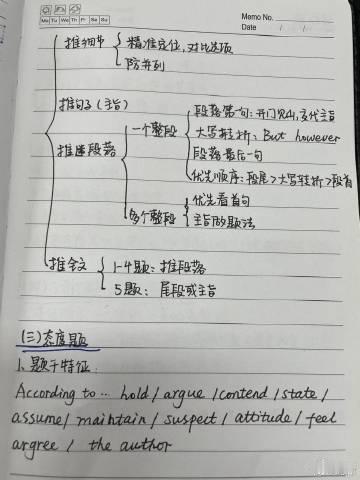 Memo No.
Mo Tu We Th Fr Sa Su
Date / /
推细节 精准定位,对比选项
防并列
推句子(主旨)
段落第一句:开门见山,交代主旨
一个整段 大写转折:But however
推速段落
段落最后一句
优先顺序:段尾>大写转折>段首
优先看首句
多个整段 主旨的题法
推全文 1-4题:推段落
5题:尾段或主旨
(三)态度题
1、题干特征:
According to … hold / argue / contend / state /
assume / maintain / suspect / attitude / feel
argree / the author